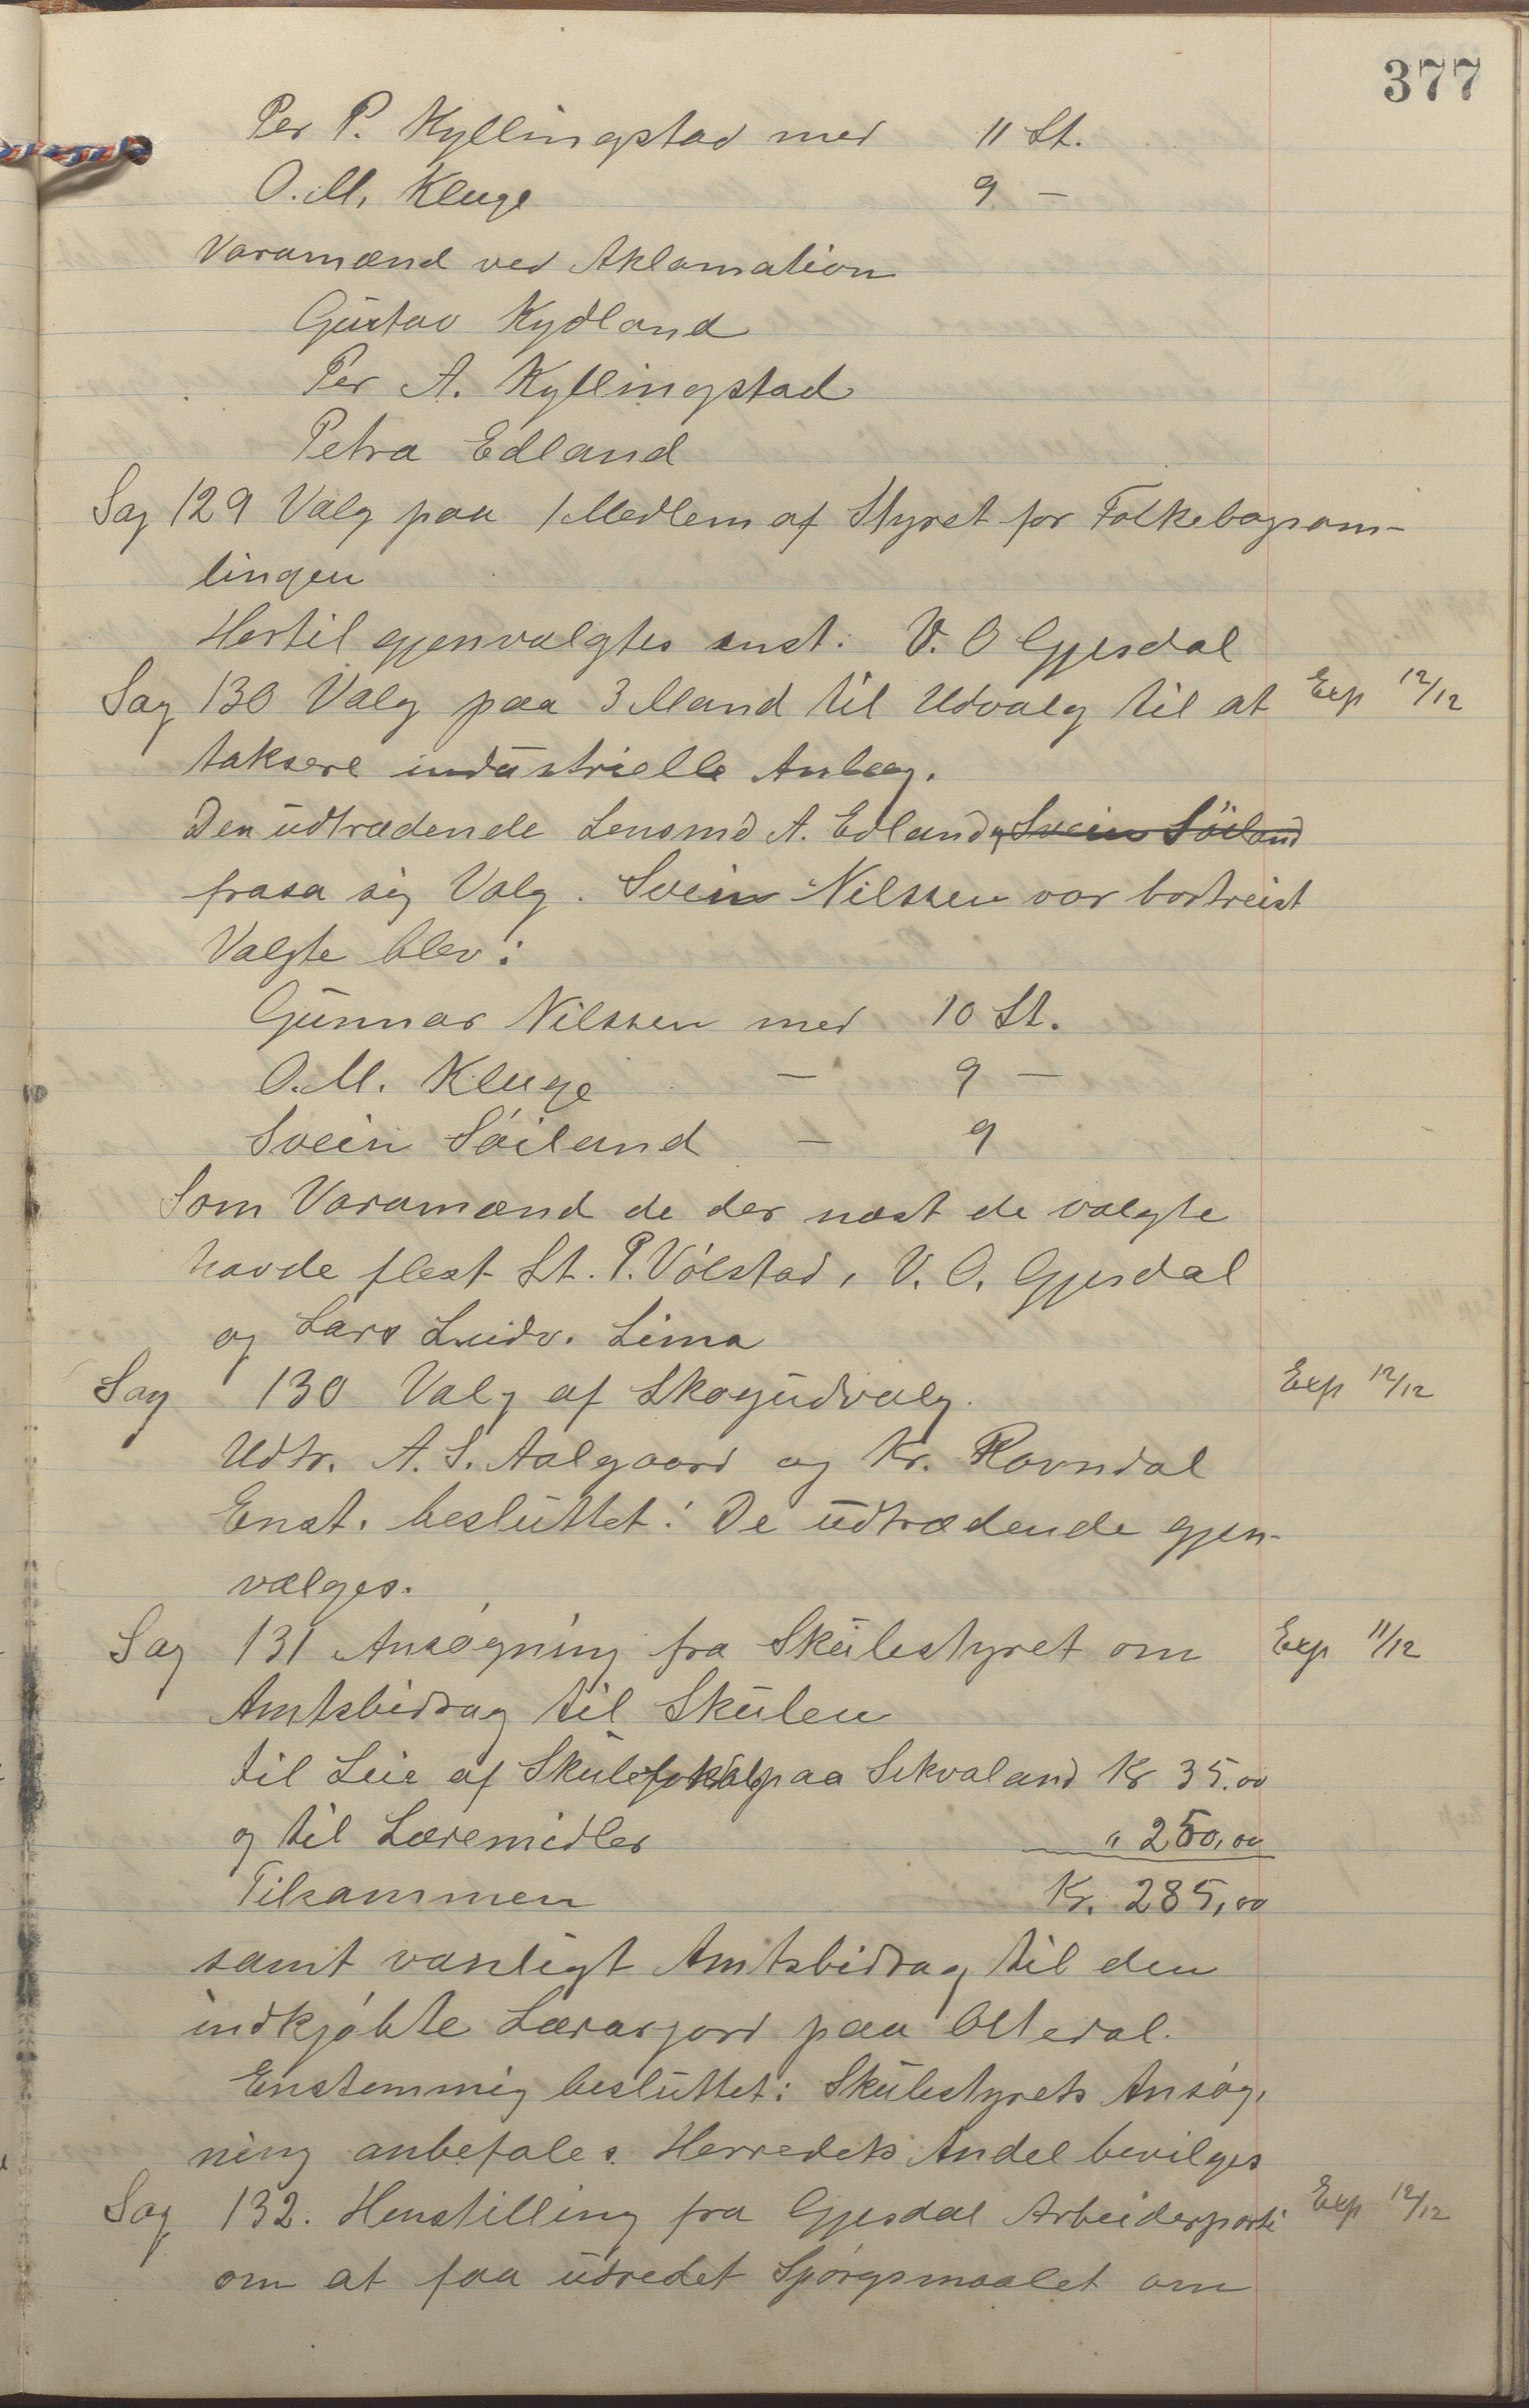 377
Per P. Kyllingstad med 11 St.
O. M. Kluge 9 —
Varamænd ved Aklamation
Gustav Kydland
Per A. Kyllingstad
Petra Edland
Sag 129 Valg paa 1 Medlem af Styret for Folkebogsam-
lingen
Hertil gjenvalgtes enst: V. O Gjesdal
Sag 130 Valg paa 3 Mand til Udvalg til at Exp 12/12
taksere industrielle Anlæg.
Den udtrædende Lensmd A. Edland og Svein Söiland
frasa sig Valg. Svein Nilssen var bortreist
Valgte blev:
Gunnar Nilssen med 10 St.
O. M. Kluge — 9 —
Svein Söiland — 9
Som Varamænd de der næst de valgte
havde flest St. P. Vølstad, V. O. Gjesdal
og Lars Ludv. Lima
Sag 130 Valg af Skogudvalg. Exp 12/12
Udtr. A. S. Aalgaard og Kr. Ravndal
Enst. besluttet: De udtrædende gjen-
vælges.
Sag 131 Ansøgning fra Skulestyret om Exp 11/12
Amtsbidrag til Skulen
til Leie af Skulelokale paa Sikvaland Kr 35.00
og til Læremidler " 250,00
Tilsammen Kr. 285,00
samt vanligt Amtsbidrag til den
indkjøbte Lærarjord paa Oltedal.
Enstemmig besluttet: Skulestyrets Ansøg-
ning anbefales. Herredets Andel bevilges
Sag 132. Henstilling fra Gjesdal Arbeiderparti Exp 12/12
om at faa udredet Spørgsmaalet om